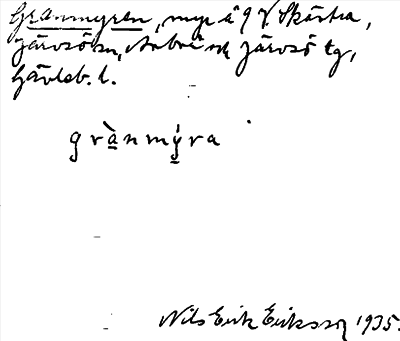 Granmyren, myr å 9 V Skästra,
Järvsö sn, Arbrå och Järvsö tg,
Gävleb. l.
grànmýra
Nils Erik Eriksson 1935.